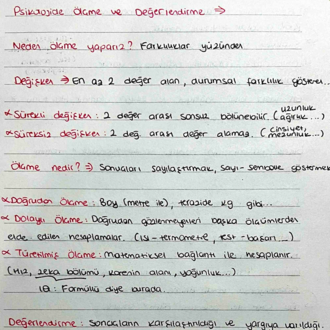 Psikolojide Ölçme ve Değerlendirme ⇒
Neden ölçme yaparız? Farklılıklar yüzünden
Değişken ⇒ En az 2 değer alan, durumsal farklılık gösteren..
* Sürekli değişken: 2 değer arası sonsuz bölünebilir. (uzunluk ağırlık...)
* Süreksiz değişken: 2 değ. arası değer alamaz. (cinsiyet, mezunluk...)
Ölçme nedir? ⇒ Sonuçları sayılaştırmak, sayı-sembolle göstermek
* Doğrudan ölçme: Boy (metre ile), terazide kg gibi...
* Dolaylı ölçme: Doğrudan gözlenmeyenleri başka ölçümlerden
elde edilen hesaplamalar. (ısı-termometre, test-başarı...)
* Türetilmiş ölçme: matematiksel bağlantı ile hesaplanır.
(Hız, zeka bölümü, karenin alanı, yoğunluk...)
IQ: Formüllü diye burada.
Değerlendirme: Sonuçların karşılaştırıldığı ve yargıya varıldığı